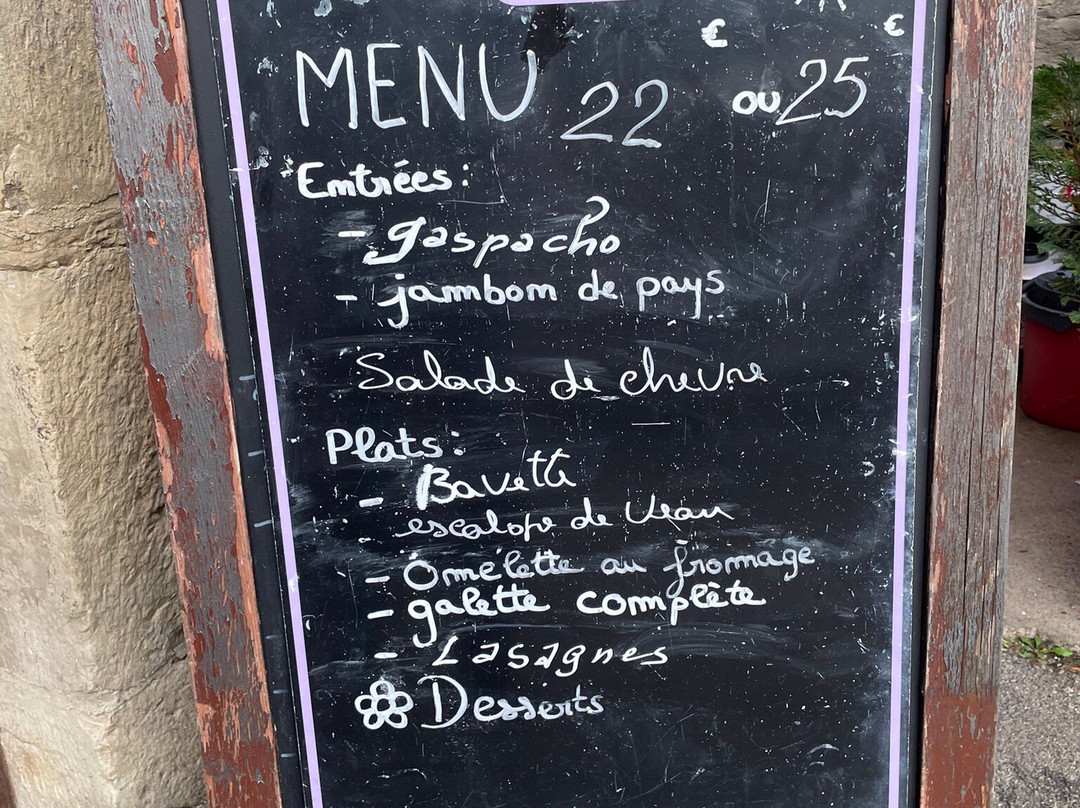 MENU 22 € ou 25 €
Entrées:
- gaspacho
- jambom de pays
Salade de chevre
Plats:
- Bavette
- escalope de Veau
- Omélette au fromage
- galette complète
- Lasagnes
Desserts